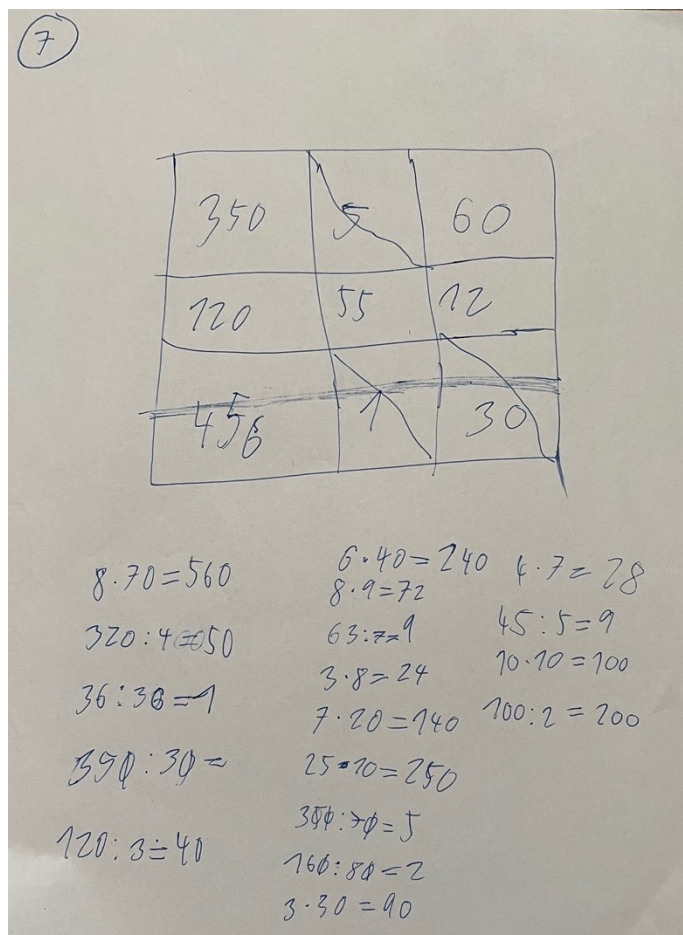 7
350 5 60
120 55 12
456 1 30
8·70=560
320:4=50
36:36=1
390:30=
120:3=40
6·40=240
8·9=72
63:7=9
3·8=24
7·20=140
25·10=250
350:70=5
160:80=2
3·30=90
4·7=28
45:5=9
10·10=100
100:2=200